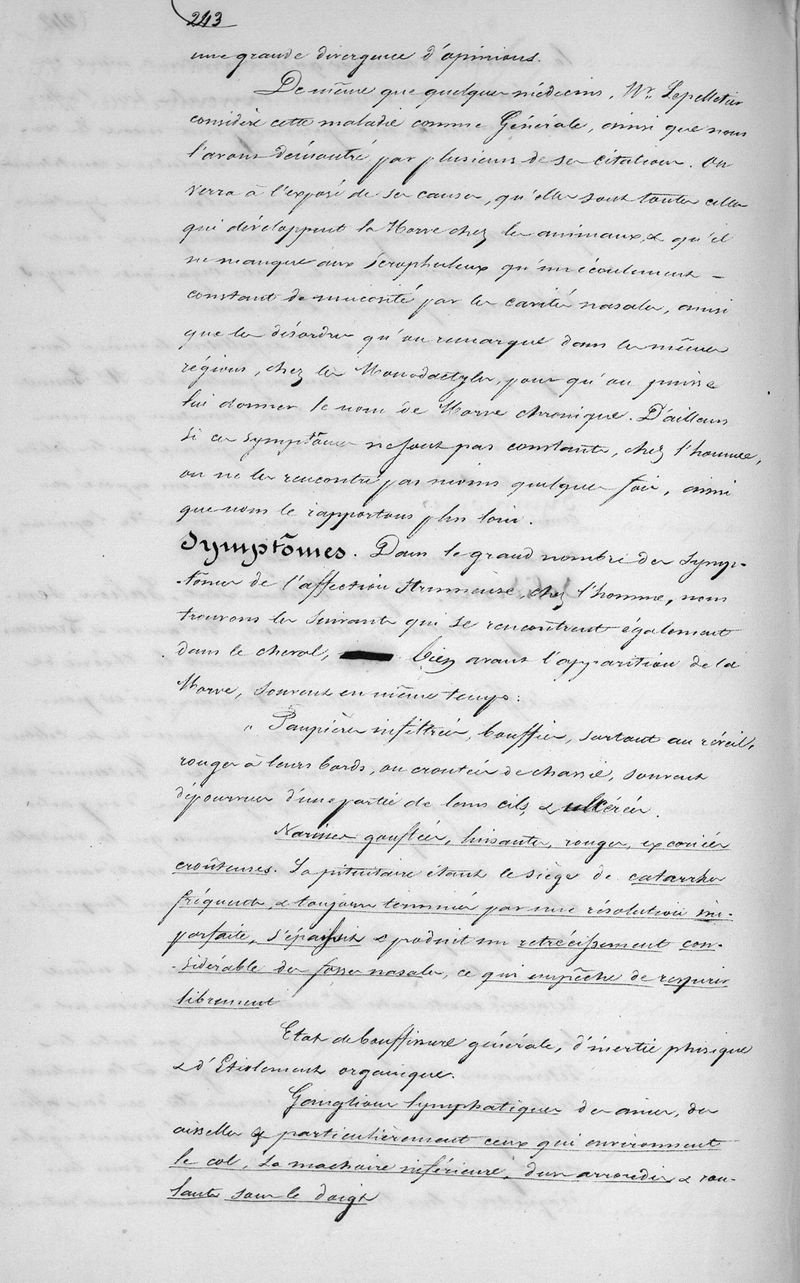 243
une grande divergence d'opinions.
De même que quelques médecins, Mr. Lepelletier
considère cette maladie comme Générale, ainsi que nous
l'avons démontré par plusieurs de ses citations. On
verra à l'exposé de ses causes, qu'elles sont toutes celles
qui développent la Morve chez les animaux, & qu'il
ne manque aux scrophuleux qu'un écoulement –
constant de mucosité par les cavités nasales, ainsi
que les désordres qu'on remarque dans les mêmes
régions, chez les Monodactyles, pour qu'on puisse
lui donner le nom de Morve chronique. D'ailleurs
si ces symptômes ne sont pas constants, chez l'homme,
on ne les rencontre pas moins quelques fois, ainsi
que nous le rapportons plus loin.
Symptômes. Dans le grand nombre des symp-
-tômes de l'affection strumeuse, chez l'homme, nous
trouvons les suivants qui se rencontrent également
dans le cheval, bien avant l'apparition de la
Morve, souvent en même temps:
" Paupières infiltrées, bouffies, surtout au réveil,
rouges à leurs bords, ou croutées de chassie, souvent
dépourvues d'une partie de leurs cils, & ulcérées.
Narines gonflées, luisantes, rouges, excoriées
croûteuses. La pituitaire étant le siège de catarrhes
fréquents, & toujours terminés par une résolution im-
-parfaite, s'épaissit & produit un retrécissement con-
-sidérable des fosses nasales, ce qui empêche de respirer
librement
Etat de bouffissure générale, d'inertie phisique
& d'Etiolement organique.
Ganglions lymphatiques des aines, des
aisselles & particulièrement ceux qui environnent
le col, la machoire inférieure, durs arrondis & rou-
-lants sous le doigt